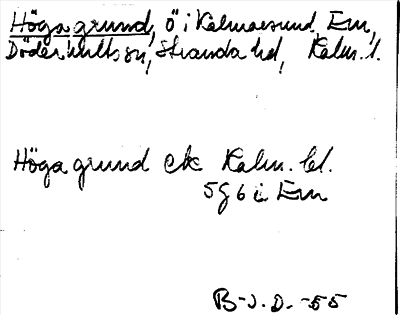 Höga grund, ö i Kalmarsund, Em,
Döderhults sn, Stranda hd, Kalm. l.
Höga grund ek Kalm. bl.
5g6i Em
B-J.D. -55